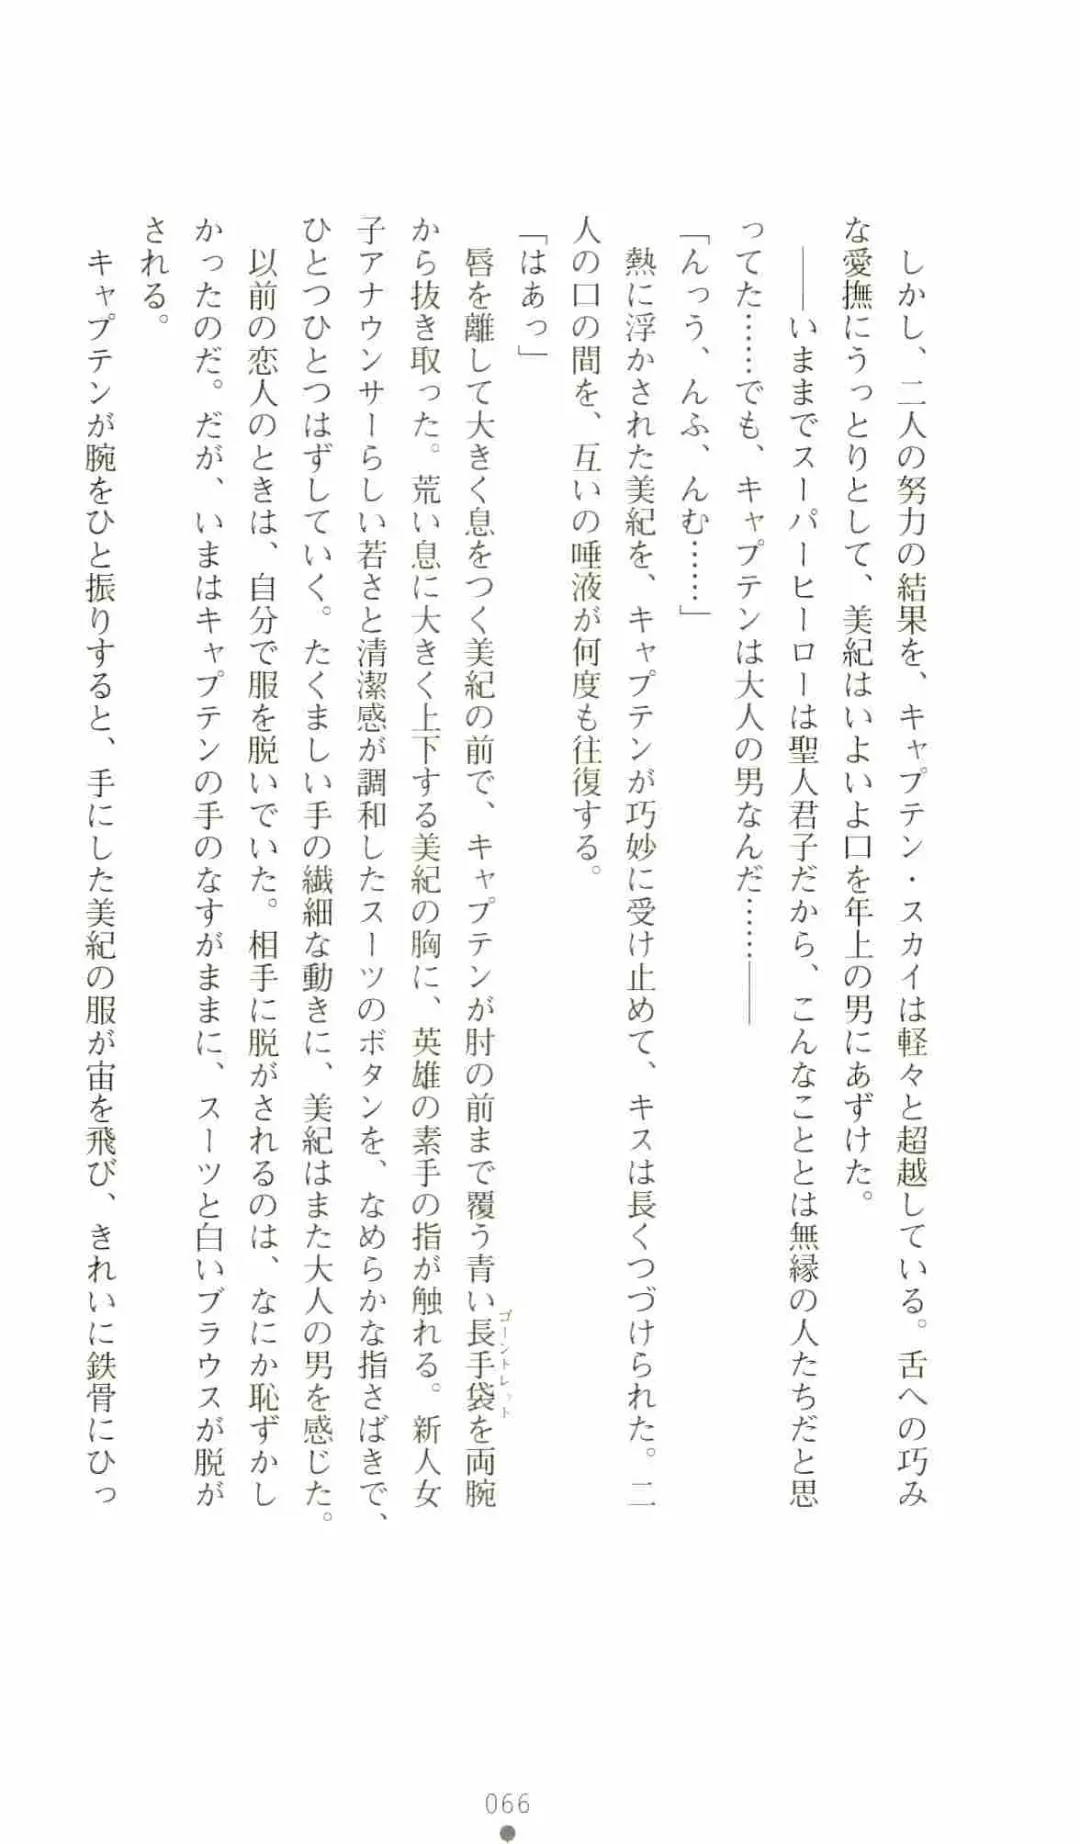 しかし、二人の努力の結果を、キャプテン・スカイは軽々と超越している。舌への巧み
な愛撫にうっとりとして、美紀はいよいよ口を年上の男にあずけた。
――いままでスーパーヒーローは聖人君子だから、こんなこととは無縁の人たちだと思
ってた……でも、キャプテンは大人の男なんだ………――
「んっう、んふ、んむ……」
熱に浮かされた美紀を、キャプテンが巧妙に受け止めて、キスは長くつづけられた。二
人の口の間を、互いの唾液が何度も往復する。
「はあっ」
唇を離して大きく息をつく美紀の前で、キャプテンが肘の前まで覆う青い長手袋を両腕
ゴーントレット
から抜き取った。荒い息に大きく上下する美紀の胸に、英雄の素手の指が触れる。新人女
子アナウンサーらしい若さと清潔感が調和したスーツのボタンを、なめらかな指さばきで、
ひとつひとつはずしていく。たくましい手の繊細な動きに、美紀はまた大人の男を感じた。
以前の恋人のときは、自分で服を脱いでいた。相手に脱がされるのは、なにか恥ずかし
かったのだ。だが、いまはキャプテンの手のなすがままに、スーツと白いブラウスが脱が
される。
キャプテンが腕をひと振りすると、手にした美紀の服が宙を飛び、きれいに鉄骨にひっ
066